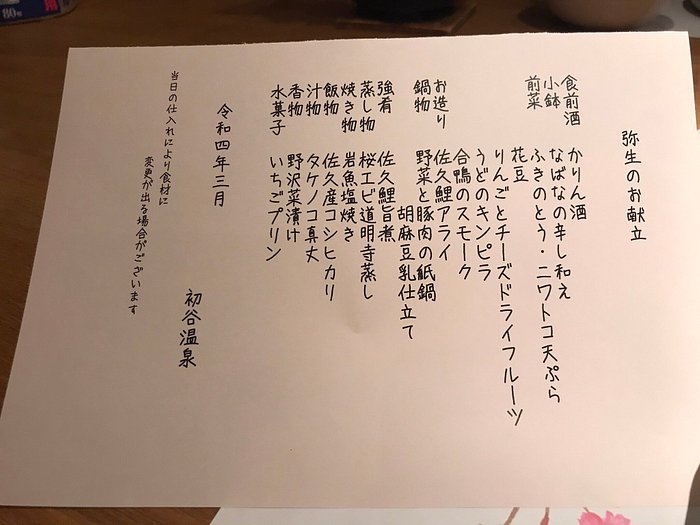 弥生のお献立
食前酒 かりん酒
小鉢 なばなの辛し和え
前菜 ふきのとう・ニワトコ天ぷら
花豆
りんごとチーズドライフルーツ
うどのキンピラ
合鴨のスモーク
お造り 佐久鯉アライ
鍋物 野菜と豚肉の紙鍋
胡麻豆乳仕立て
強肴 佐久鯉旨煮
蒸し物 桜エビ道明寺蒸し
焼き物 岩魚塩焼き
飯物 佐久産コシヒカリ
汁物 タケノコ真丈
香物 野沢菜漬け
水菓子 いちごプリン
令和四年三月
初谷温泉
当日の仕入れにより食材に
変更が出る場合がございます
80名